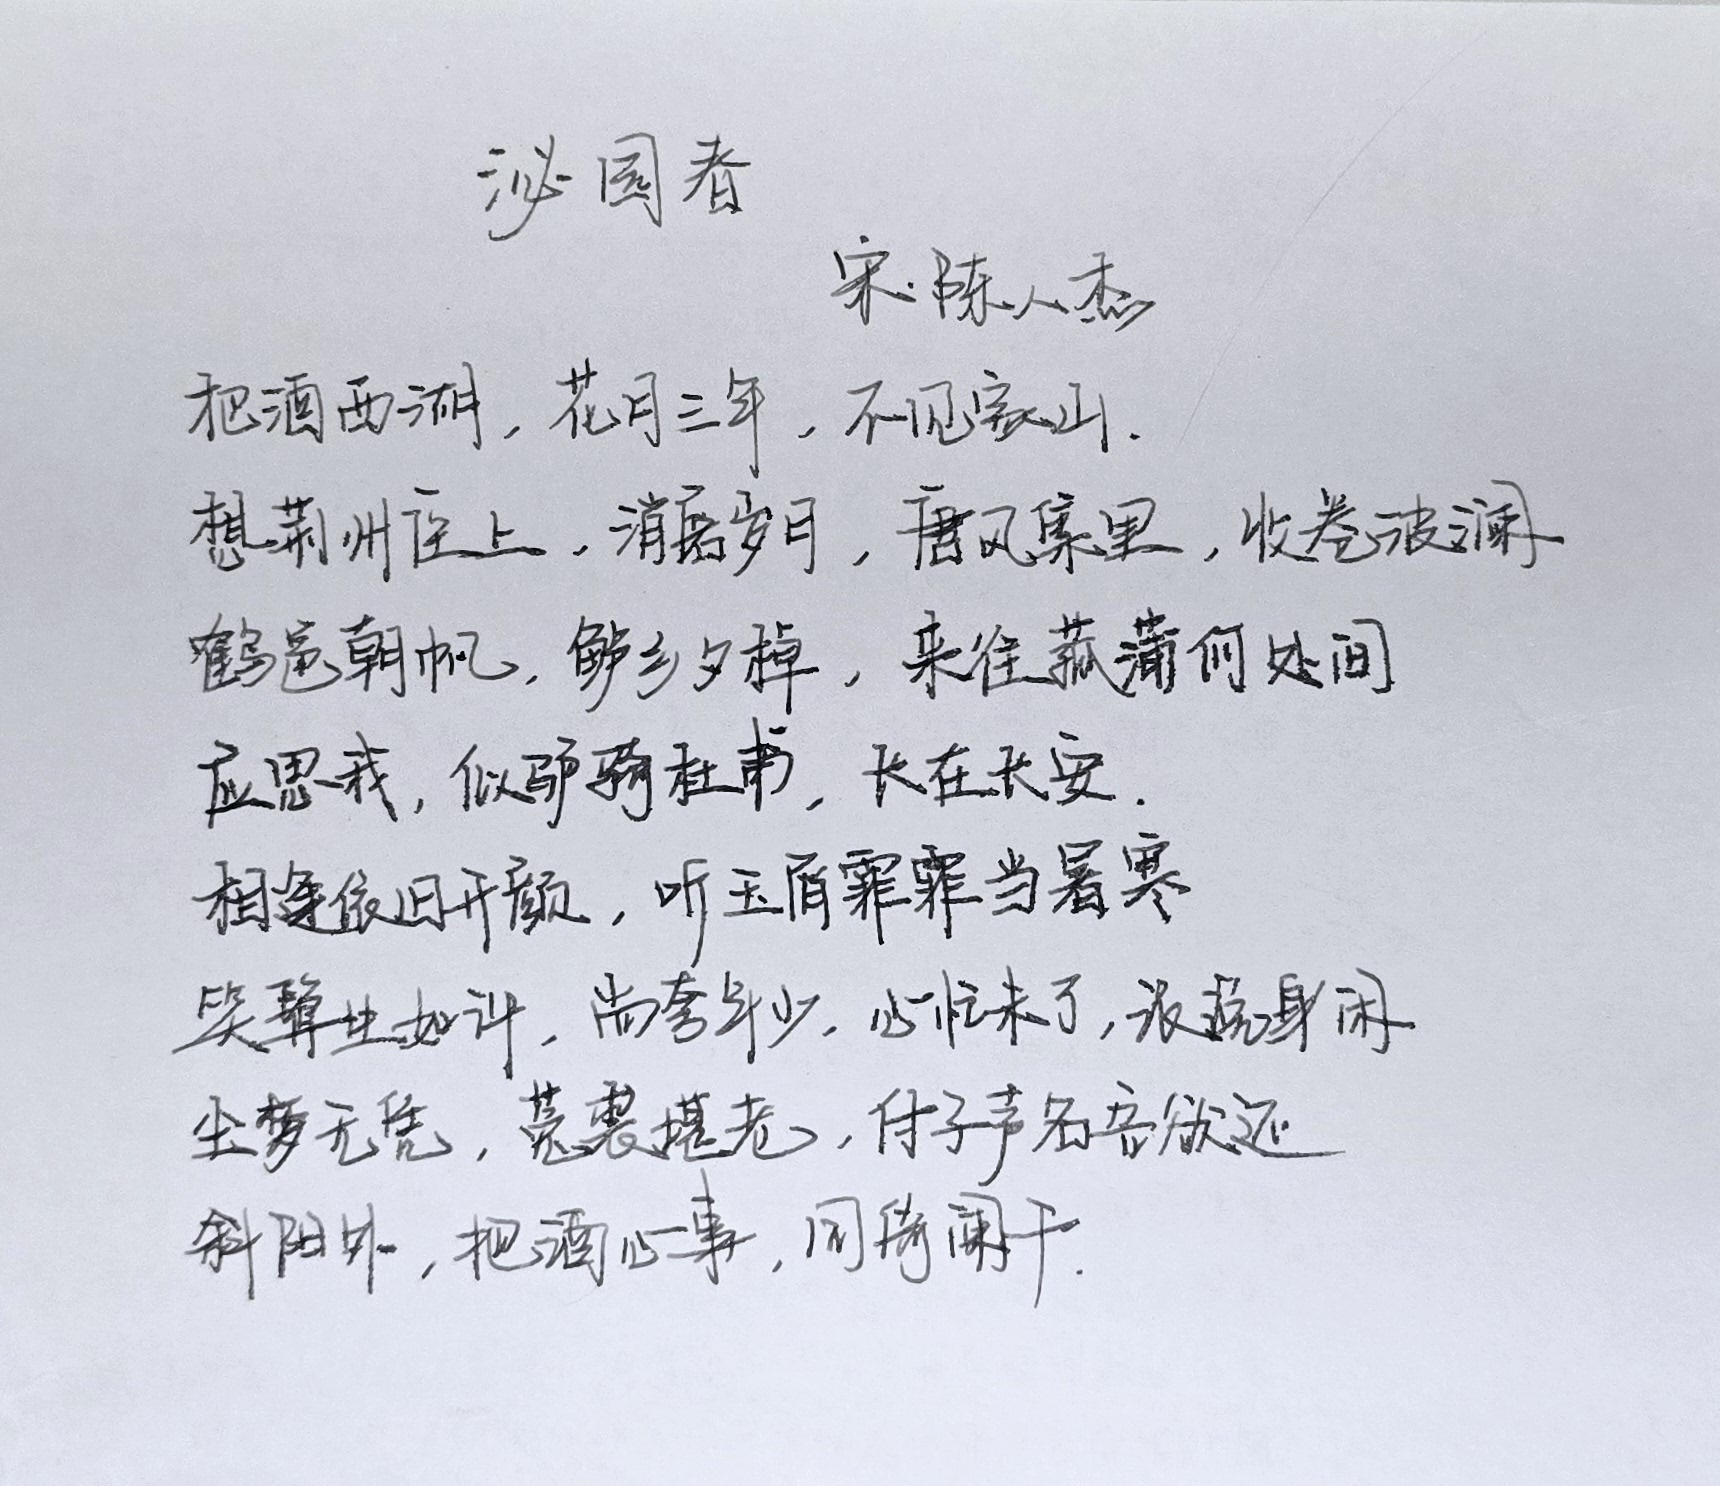 泌园春
宋·陈人杰
把酒西湖，花月三年，不见家山.
想荆州座上，消磨岁月，唐风集里，收卷波澜
鹤邑朝帆，鲈乡夕棹，来往菰蒲何处间
应思我，似驴骑杜甫，长在长安.
相逢依旧开颜，听玉屑霏霏当暑寒
笑犇生如许，尚夸年少，心忙未了，浪说身闲
尘梦无凭，菟裘堪老，付子声名吾欲还
斜阳外，把酒心事，同倚阑干.